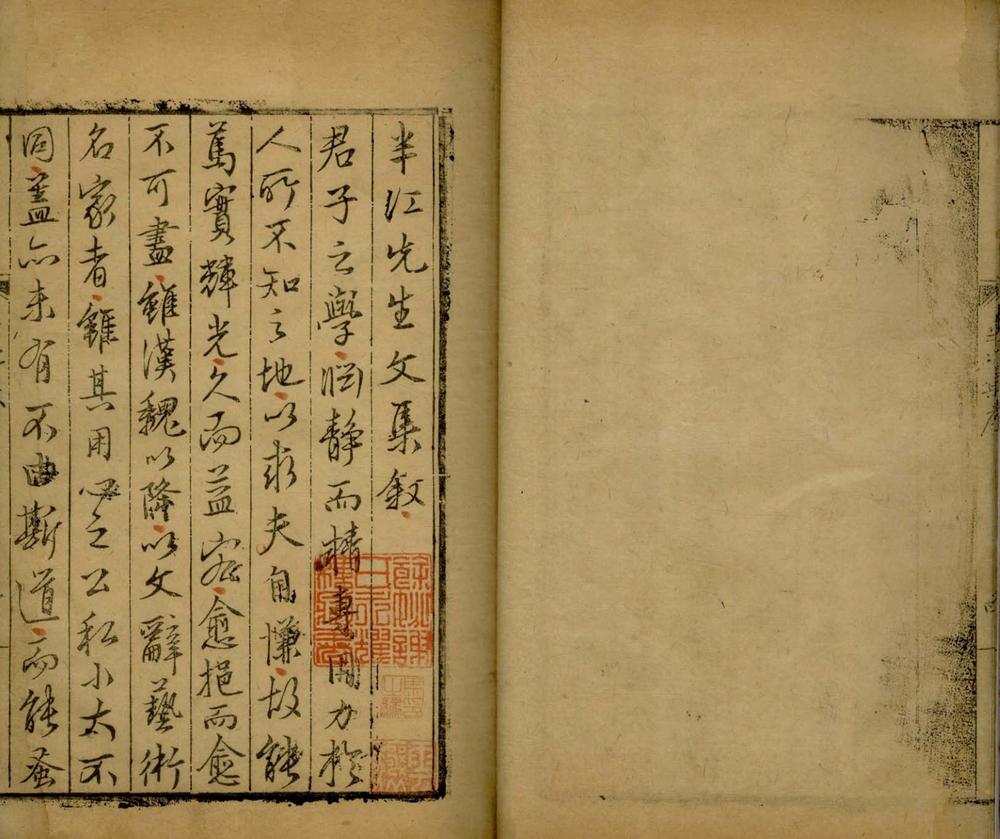 半江先生文集敘
君子之學淵静而精專用力於
人所不知之地以求夫自慊故能
篤實輝光久而益宏愈挹而愈
不可盡雖漢魏以降以文辭藝術
名家者雖其用心之公私小大不
同盖亦未有不由斯道而能蚤